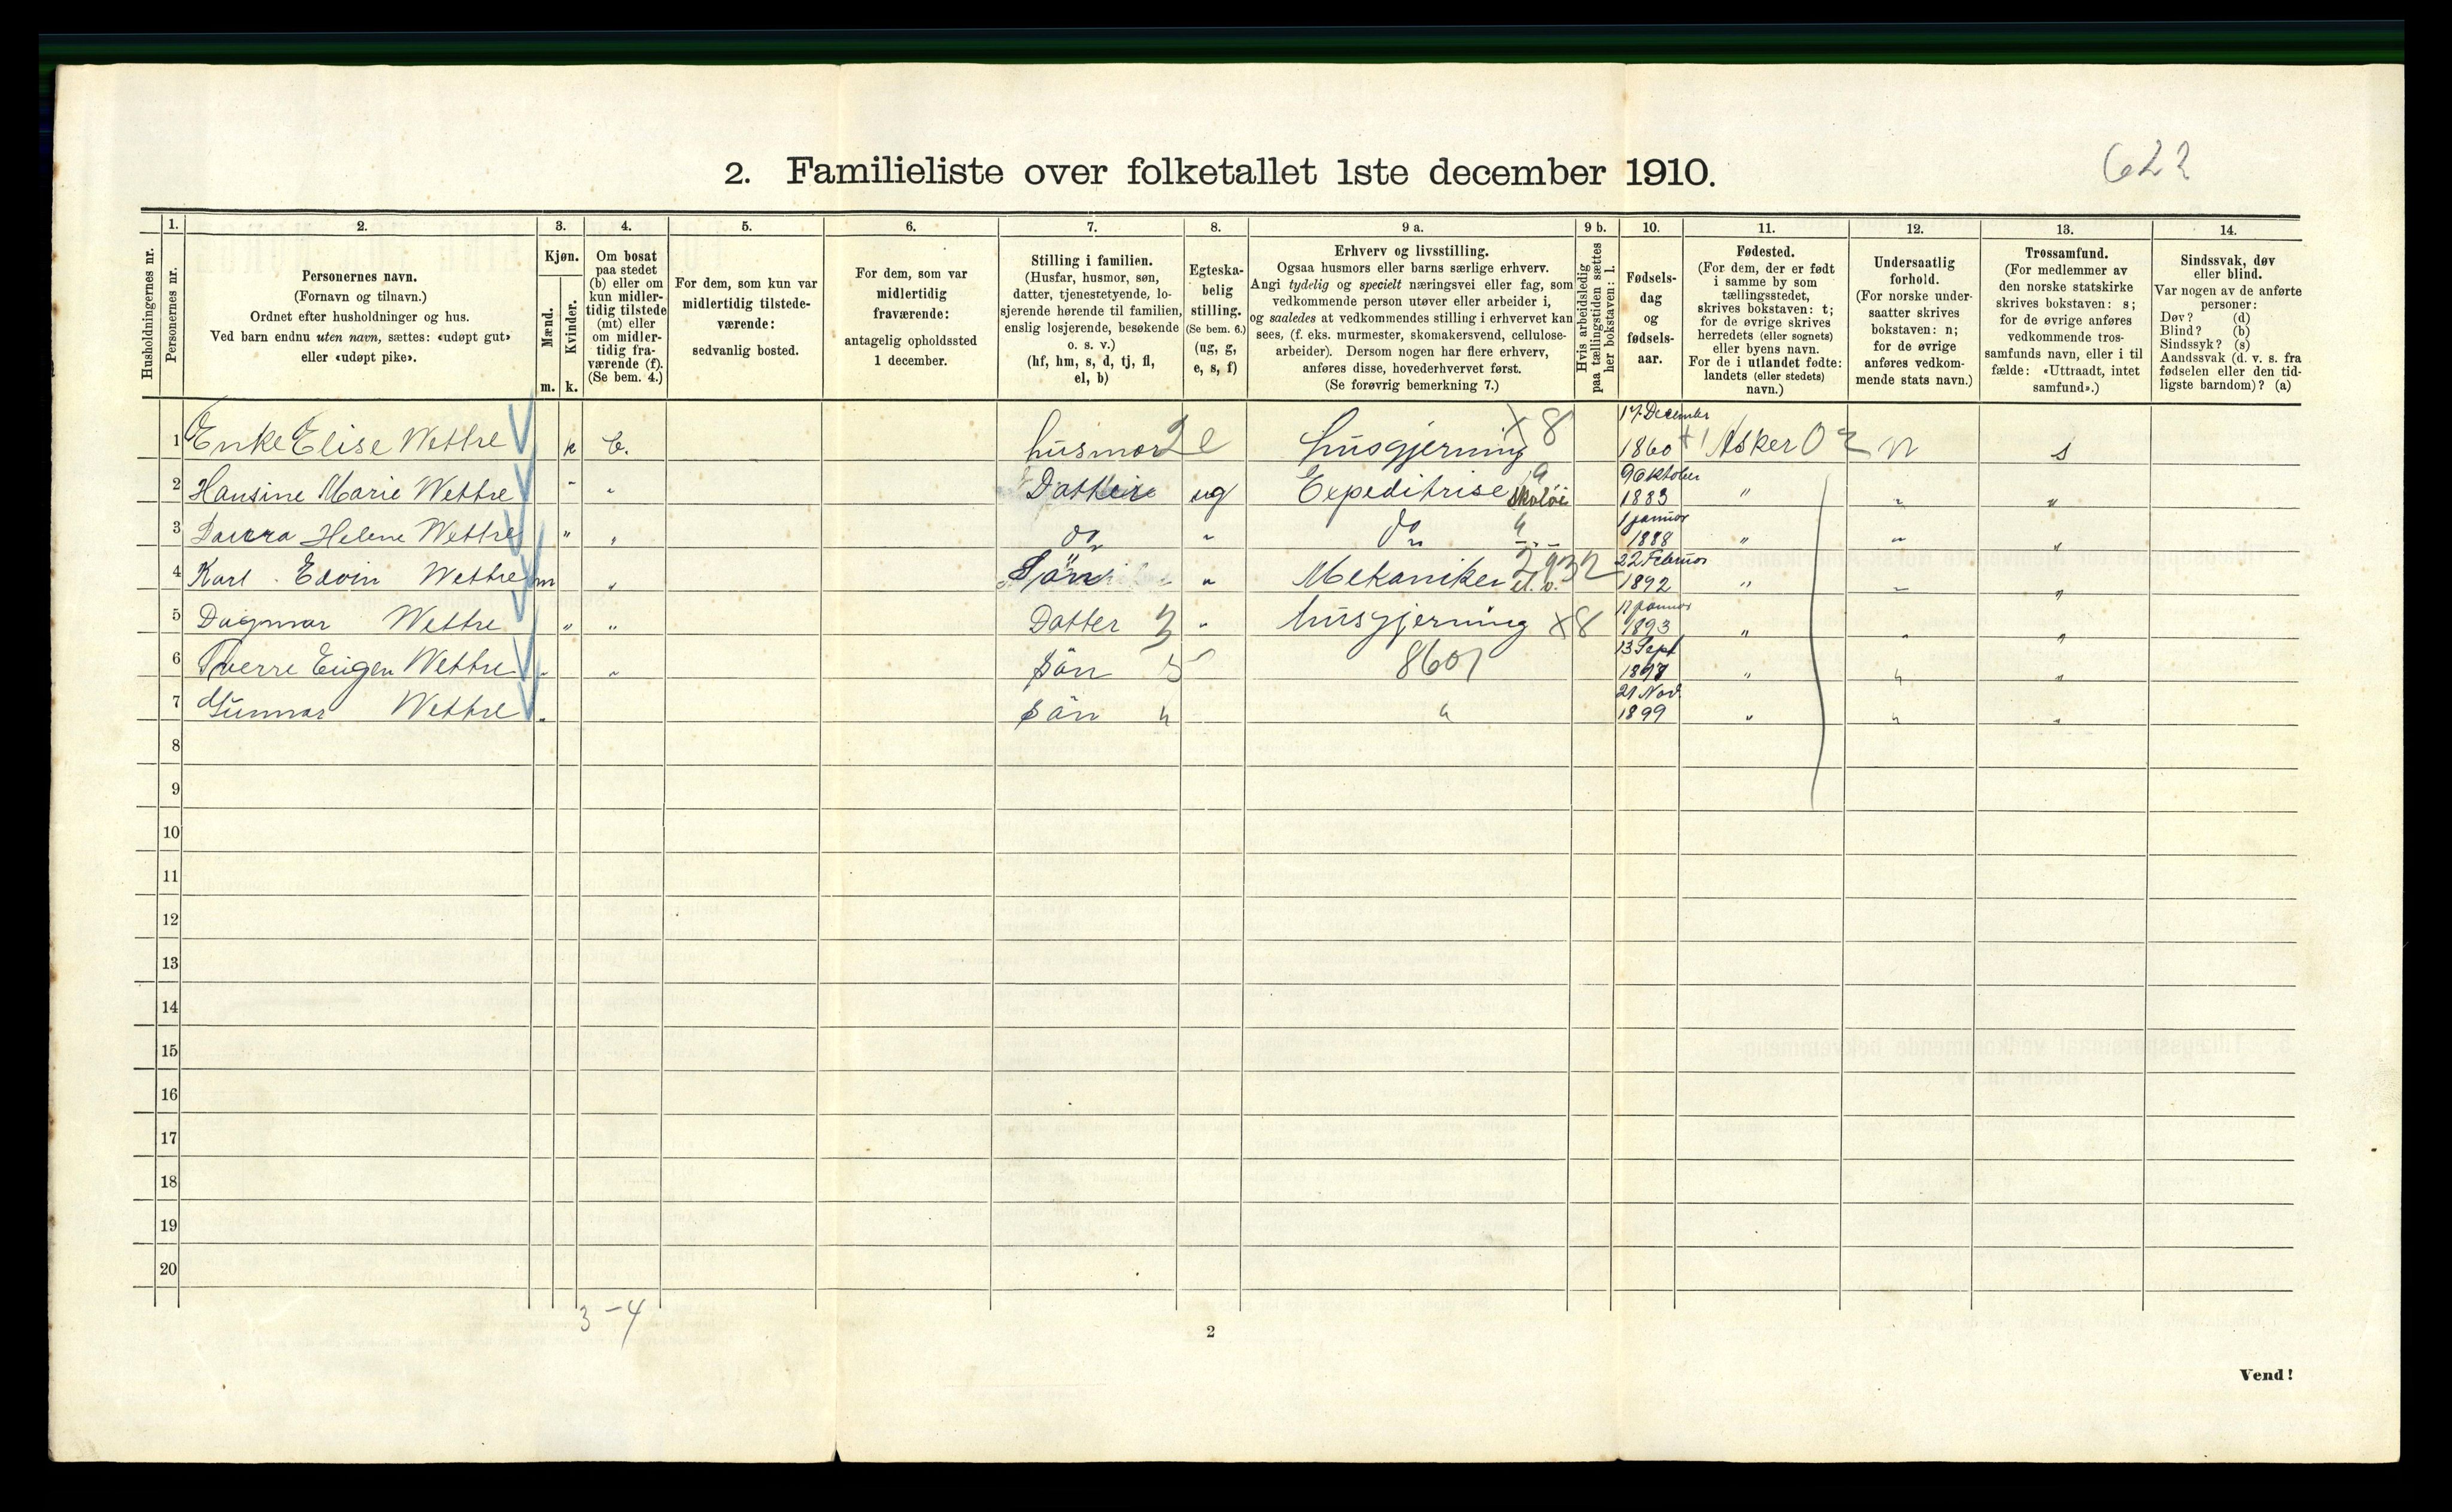 2. Familieliste over folketallet 1ste december 1910.
622
1. 2. 3. 4. 5. 6. 7. 8. 9 a. 9 b. 10. 11. 12. 13. 14.
Husholdningernes nr.
Personernes nr.
Personernes navn.
(Fornavn og tilnavn.)
Ordnet efter husholdninger og hus.
Ved barn endnu uten navn, sættes: «udøpt gut»
eller «udøpt pike».
Kjøn.
Mænd.
Kvinder.
m. k.
Om bosat
paa stedet
(b) eller om
kun midler-
tidig tilstede
(mt) eller
om midler-
tidig fra-
værende (f).
(Se bem. 4.)
For dem, som kun var
midlertidig tilstede-
værende:
sedvanlig bosted.
For dem, som var
midlertidig
fraværende:
antagelig opholdssted
1 december.
Stilling i familien.
(Husfar, husmor, søn,
datter, tjenestetyende, lo-
sjerende hørende til familien,
enslig losjerende, besøkende
o. s. v.)
(hf, hm, s, d, tj, fl,
el, b)
Egteska-
belig
stilling.
(Se bem. 6.)
(ug, g,
e, s, f)
Erhverv og livsstilling.
Ogsaa husmors eller barns særlige erhverv.
Angi tydelig og specielt næringsvei eller fag, som
vedkommende person utøver eller arbeider i,
og saaledes at vedkommendes stilling i erhvervet kan
sees, (f. eks. murmester, skomakersvend, cellulose-
arbeider). Dersom nogen har flere erhverv,
anføres disse, hovederhvervet først.
(Se forøvrig bemerkning 7.)
Hvis arbeidsledig
paa tællingstiden sættes
her bokstaven: l.
Fødsels-
dag
og
fødsels-
aar.
Fødested.
(For dem, der er født
i samme by som
tællingsstedet,
skrives bokstaven: t;
for de øvrige skrives
herredets (eller sognets)
eller byens navn.
For de i utlandet fødte:
landets (eller stedets)
navn.)
Undersaatlig
forhold.
(For norske under-
saatter skrives
bokstaven: n;
for de øvrige
anføres vedkom-
mende stats navn.)
Trossamfund.
(For medlemmer av
den norske statskirke
skrives bokstaven: s;
for de øvrige anføres
vedkommende tros-
samfunds navn, eller i til
fælde: «Uttraadt, intet
samfund».)
Sindssvak, døv
eller blind.
Var nogen av de anførte
personer:
Døv? (d)
Blind? (b)
Sindssyk? (s)
Aandssvak (d. v. s. fra
fødselen eller den tid-
ligste barndom)? (a)
1 Enke Elise Wettre k b. husmor 2 e husgjerning x 8 17 December 1860 Asker 02 n s
2 Hansine Marie Wettre " " Datter ug Expeditrise Skotøi 9 Oktober 1883 " " "
3 Helene Wettre " " do " do " 1 januar 1888 " " "
4 Karl Edvin Wettre m " Sön " Mekaniker el. v. 2932 22 Februar 1892 " " "
5 Dagmar Wettre " " Datter 3 " husgjerning x8 17 januar 1893 " " "
6 Sverre Eugen Wettre " " Sön 5 8601 13 Sept 1897 " " "
7 Gunnar Wettre " Sön " " 21 Nov. 1899 " " "
8
9
10
11
12
13
14
15
16
17
18
19
20
3 - 4
2
Vend!